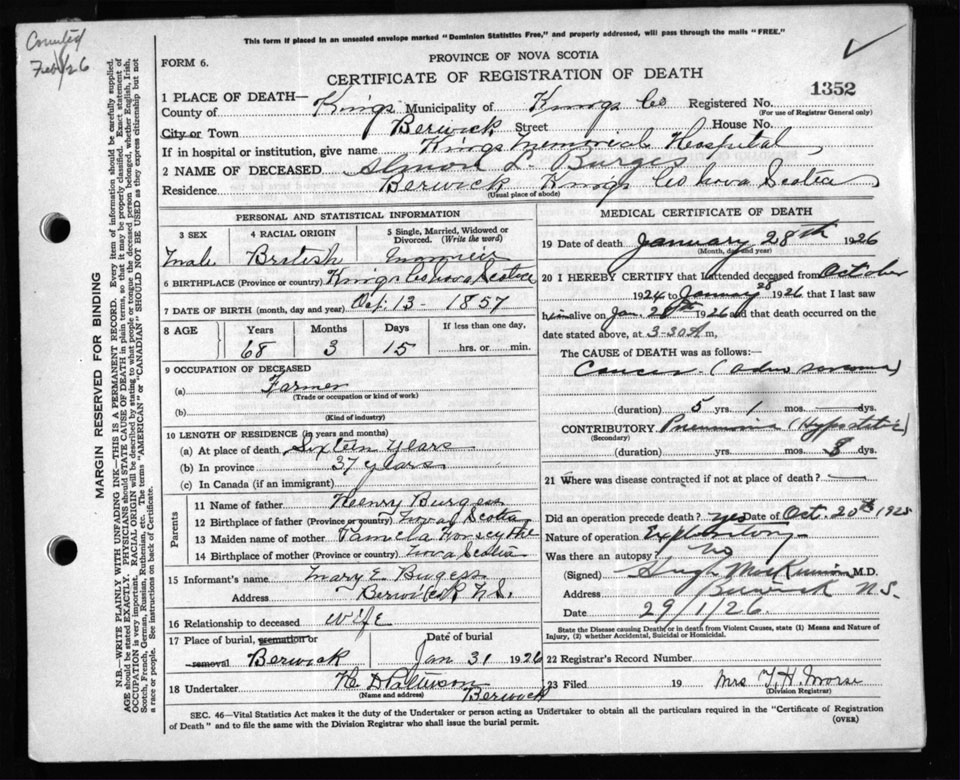 Counted
Feb/26
This form if placed in an unsealed envelope marked "Dominion Statistics Free," and properly addressed, will pass through the mails "FREE."
FORM 6.
PROVINCE OF NOVA SCOTIA
CERTIFICATE OF REGISTRATION OF DEATH
1352
1 PLACE OF DEATH—
County of Kings Municipality of Kings Co Registered No.
(For use of Registrar General only)
City or Town Berwick Street House No.
If in hospital or institution, give name Kings Memorial Hospital
2 NAME OF DECEASED L. Burges
Residence Berwick Kings Co Nova Scotia
(Usual place of abode)
PERSONAL AND STATISTICAL INFORMATION
3 SEX
Male
4 RACIAL ORIGIN
British
5 Single, Married, Widowed or Divorced. (Write the word)
6 BIRTHPLACE (Province or country) Kings Co Nova Scotia
7 DATE OF BIRTH (month, day and year) Oct. 13 - 1857
8 AGE Years Months Days If less than one day,
68 3 15 hrs. or min.
9 OCCUPATION OF DECEASED
(a) Farmer
(Trade or occupation or kind of work)
(b)
(Kind of industry)
10 LENGTH OF RESIDENCE (in years and months)
(a) At place of death Sixteen years
(b) In province 37 years
(c) In Canada (if an immigrant)
Parents
11 Name of father Henry Burgess
12 Birthplace of father (Province or country) Nova Scotia
13 Maiden name of mother Pamela
14 Birthplace of mother (Province or country) Nova Scotia
15 Informant's name Mary E. Burgess
Address Berwick N.S.
16 Relationship to deceased wife
17 Place of burial, cremation or removal Berwick
Date of burial Jan 31 1926
18 Undertaker
(Name and address) Berwick
MEDICAL CERTIFICATE OF DEATH
19 Date of death January 28th 1926
(Month, day and year)
20 I HEREBY CERTIFY that I attended deceased from October
1924 to January 28 1926, that I last saw
him alive on Jan. 28th 1926 and that death occurred on the
date stated above, at 3-30 A m,
The CAUSE OF DEATH was as follows:
Cancer (
(duration) 5 yrs. 1 mos. dys.
CONTRIBUTORY Pneumonia (Hypostatic)
(Secondary)
(duration) yrs. mos. 8 dys.
21 Where was disease contracted if not at place of death?
Did an operation precede death? yes Date of Oct. 20th 1925
Nature of operation Exploratory
Was there an autopsy? No
(Signed) Hugh M.D.
Address Berwick N.S.
Date 29/1/26.
State the Disease causing Death, or in death from Violent Causes, state (1) Means and Nature of Injury, (2) whether Accidental, Suicidal or Homicidal.
22 Registrar's Record Number
23 Filed 19 Mrs T. H. Morse
(Division Registrar)
SEC. 46—Vital Statistics Act makes it the duty of the Undertaker or person acting as Undertaker to obtain all the particulars required in the "Certificate of Registration
of Death" and to file the same with the Division Registrar who shall issue the burial permit.
(OVER)
MARGIN RESERVED FOR BINDING
N.B.—WRITE PLAINLY WITH UNFADING INK—THIS IS A PERMANENT RECORD. Every item of information should be carefully supplied.
AGE should be stated EXACTLY. PHYSICIANS should STATE CAUSE OF DEATH in plain terms, so that it may be properly classified. Exact statement of
OCCUPATION is very important. RACIAL ORIGIN will be described by stating to what people or tongue the deceased person belonged, whether English, Irish,
Scotch, French, German, Russian, Ruthenian, etc. The terms "AMERICAN" or "CANADIAN" SHOULD NOT BE USED as they express citizenship but not
a race or people. See instructions on back of Certificate.